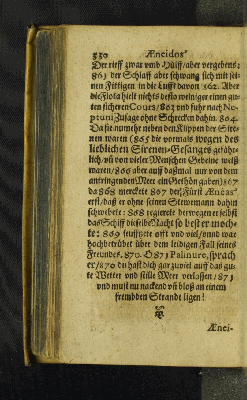 330 Æneidos
Der rieff zwar vmb Hülff/aber vergebens:
861 der Schlaff aber schwang sich mit sei-
nen Fittigen in die Lufft davon 862. Aber
die Flota hielt nichts desto weniger einen gu-
ten sicheren Cours/862 und fuhr nach Ne-
ptuni Zusage ohne Schrecken dahin. 864:
Da sie nunmehr neben den Klippen der Sire-
nen waren (865 die vormals wegen des
lieblichen Sirenen-Gesanges gefähr-
lich/vñ von vieler Menschen Gebeine weiß
waren/866 aber auff daßmal nur von dem
antringenden Meer ein Gethön gaben) 867
da 868 merckete 867 der Fürst Æneas
erst/daß er ohne seinen Stewrmann dahin
schwebete: 868 regierete derwegen er selbst
das Schiff dieselbe Nacht so best er moch-
te: 869 seufftzete offt und viel/vnnd war
hochbetrübet über dem leidigen Fall seines
Freundes. 870. O 871 Palinure, sprach
er/870 du hast dich gar zuviel auff das gu-
te Wetter und stille Meer verlassen/871
und must nu nackend vñ bloß an einem
frembden Strande ligen!
Ænei-